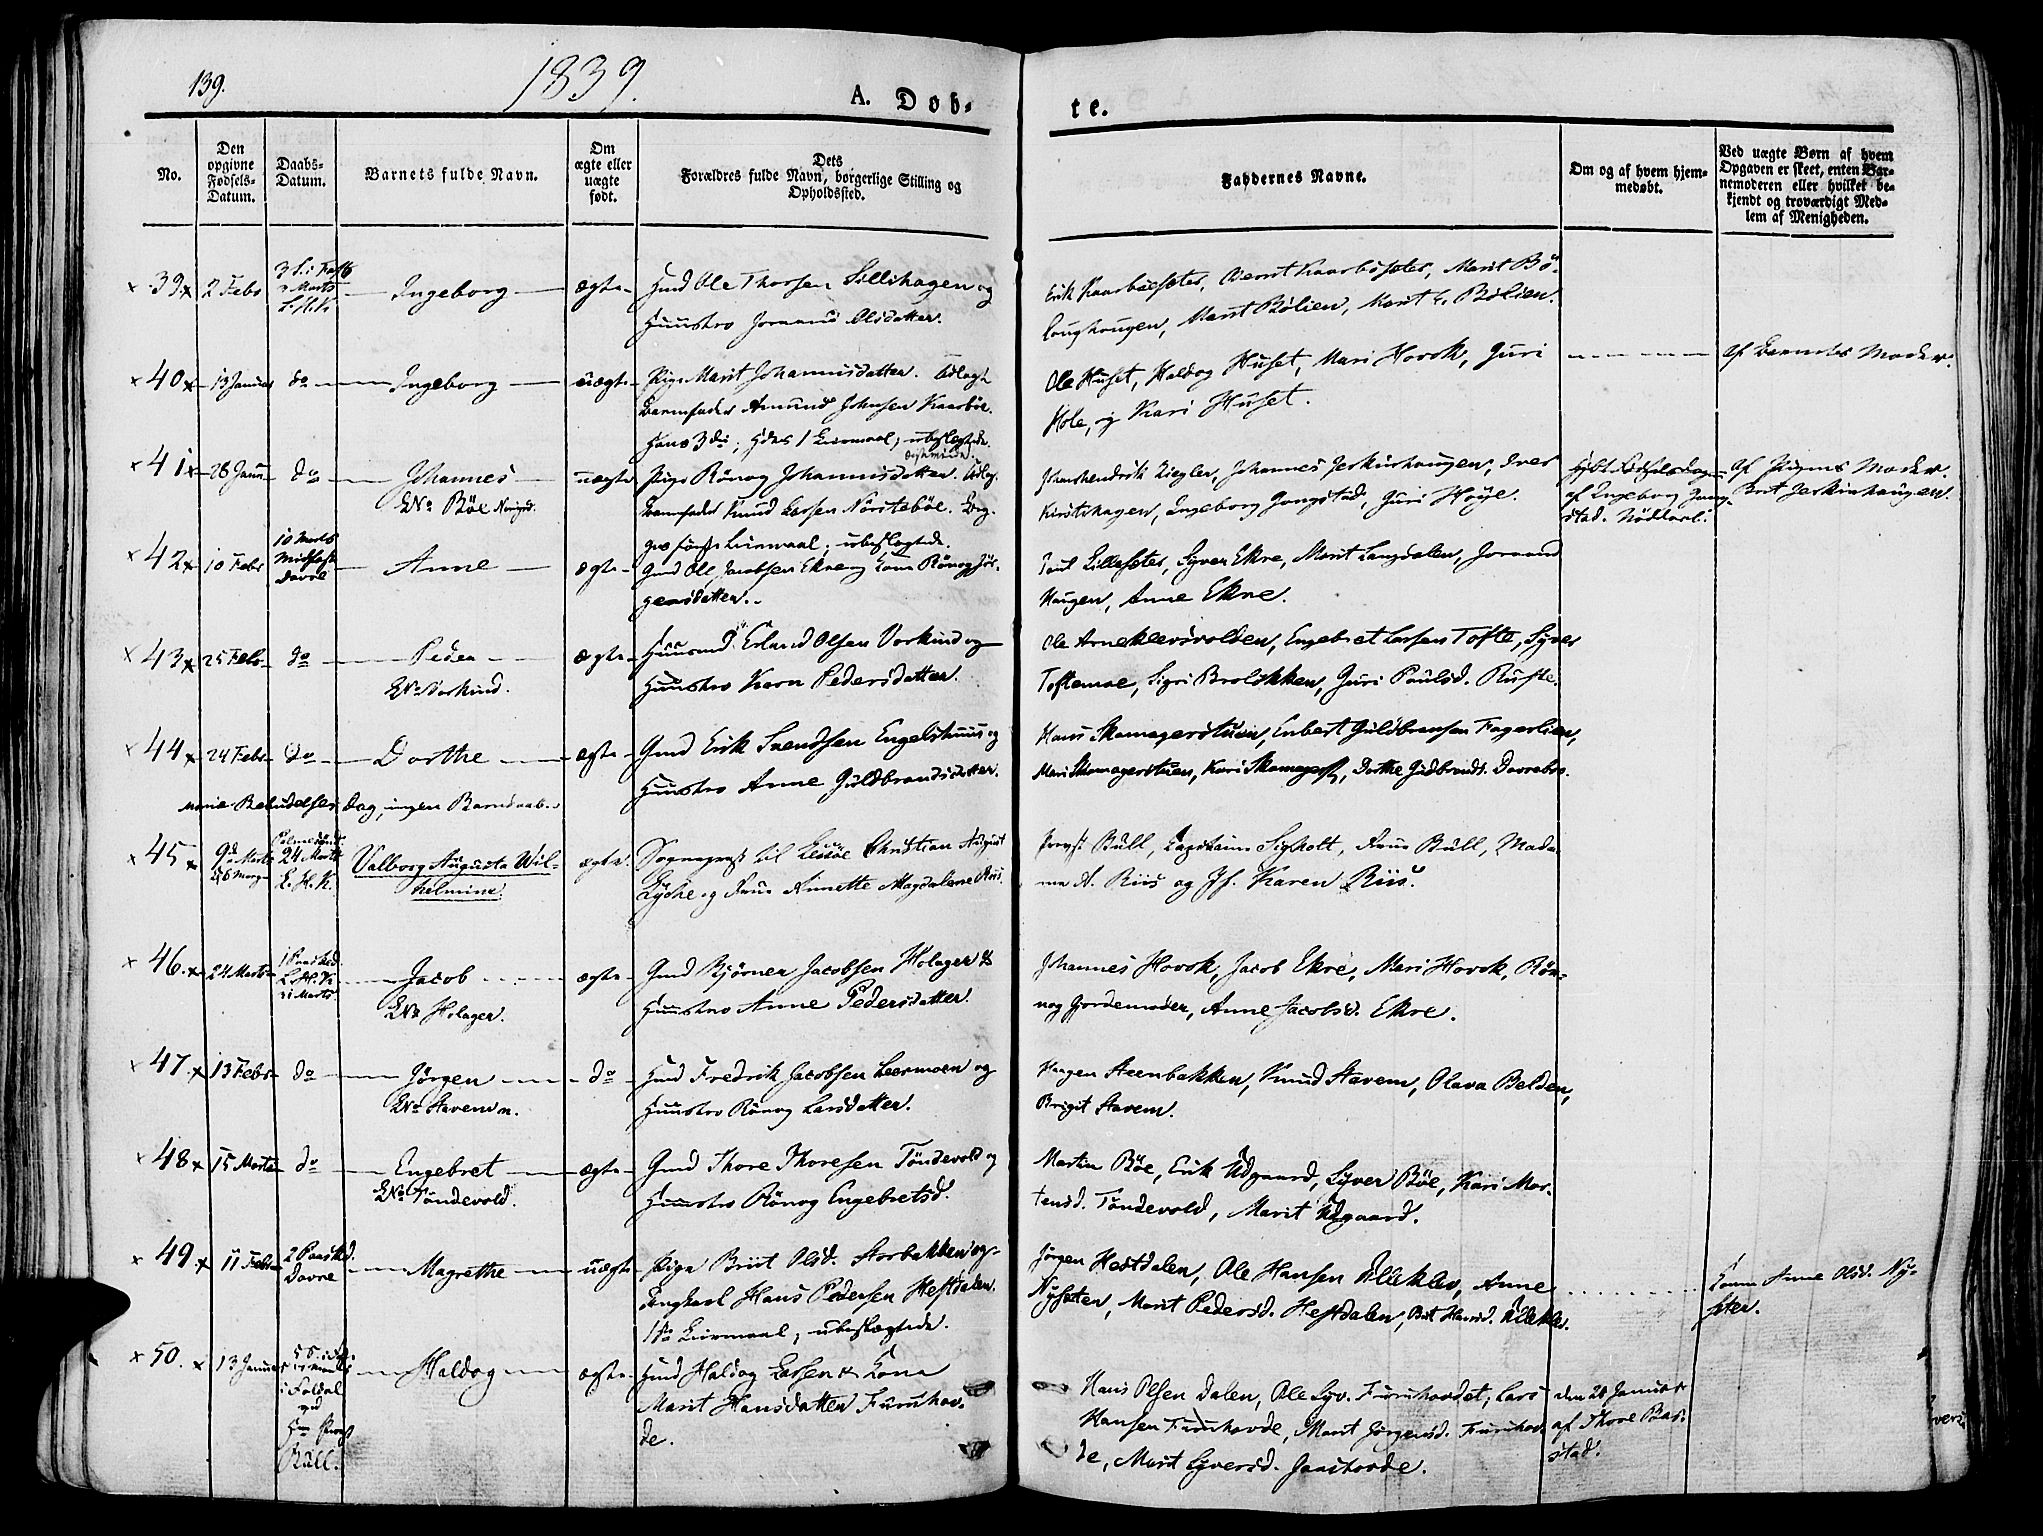 139.
1839.
A. Døb-
te.
No.
Den opgivne Fødsels-Datum.
Daabs-Datum.
Barnets fulde Navn.
Om ægte eller uægte født.
Dets Forældres fulde Navn, borgerlige Stilling og Opholdssted.
Faddernes Navne.
Om og af hvem hjem-
medøbt.
Ved uægte Børn af hvem
Opgaven er skeet, enten Bar-
nemoderen eller hvilket be-
kjendt og troværdigt Med-
lem af Menigheden.
39 2 Febr 3 S. i Fast 3 Marts L.H.K. Ingeborg ægte Gmd Ole Thorsen Sillihagen og
Huustro Joraand Olsdatter.
Erik Kaarbøesæter, Bernt Kaarbøsæter, Marit Bø-
loughougen, Marit Bølien, Marit Bølien.
40 13 Januar do Ingeborg uægte Pige Marit Johannisdatter. Udlagt
Barnefader Amund Johnsen Kaarbøe.
Hans 3die, Hdes 1 Leiermaal, ubeslægtede.
Ole Huset, Haldog Huset, Mari Hovok, Guri
Hole, og Kari Huset.
Af Barnets Moder.
41 28 Janu do Johannes uægte Pige Rönog Johannisdatter. Udlag.
EN: Böe Barnefader Knud Larsen Nörstebøe. Beg-
ges første Leiermaal, ubeslægtede.
Johannes Jeskinhaugen, Iver
Kirstihagen, Ingeborg Gongstad, Guri Høye.
af Ingeborg Gong-
stad.
Af Pigens Moder.
Brit Jeskinhaugen.
42 10 Febr 10 Marts Midfaste Dovre Anne ægte Gmd Ole Jacobsen Ekre og Kone Rönog Jör-
gensdatter.
Poul Lillesæter, Syver Ekre, Marit Langdalen, Joraand
Haugen, Anne Ekre.
43 25 Febr do Peder ægte Huusmd Erland Olsen Vorkind og
EN: Vorkind. Huustro Karn Pedersdatter.
Ole Arneklevsvolden, Engebret Larsen Tofte, Syver
Toftemoe, Sigri Brolökken, Guri Poulsd. Rusten.
44 24 Febr do Dorthe ægte Gmd Erik Svendsen Engelshuus og
Huustro Anne Guldbrandsdatter.
Hans Skomagerstuen, Enbert Guldbransen Fagerlien,
Mari Skomagerstuen, Kari Skomagerst, Dorthe Gudbrands. Dovrebø.
Marie Bebudelses Dag, ingen Barnedaab.
45 9de Marts Palmesönd. 24 Marts L.H.K. Valborg Augusta Wil-
helmine. ægte Sognepræst til Lessøe Christian August
Lyche og Frue Annette Magdalene Riis.
Provst Bull, Capitain Sigholt, Frue Bull, Mada-
me A. Riis og Jf. Karen Riis.
46. 24 Marts 1 Paaskd. L.H.K. 31 Marts Jacob ægte Gmd Bjørner Jacobsen Holager &
EN: Holager. Huustro Anne Pedersdatter.
Johannes Hovok, Jacob Ekre, Mari Hovok, Rön-
nog Gjordemoder, Anne Jacobsd. Ekre.
47. 13 Febr do Jörgen do Hmd Fredrik Jacobsen Leermoen og
EN: Stavem Huustro Rönog Larsdatter.
Haagen Steenbakken, Knud Stavem, Olava Belden,
Brigit Stavem.
48 15 Marts do Engebret ægte Gmd Thore Thoresen Töndevold og
EN: Töndevold. Huustro Rönog Engebretsd.
Martin Böe, Erik Udgaard, Syver Böe, Kari Mor-
tensd. Töndevold, Marit Udgaard.
49 11 Febr 2 Paaskd. Dovre Magrethe uægte Pige Briit Olsd. Storbakken og
Ungkarl Hans Pedersen Hestdalen.
1ste Leiermaal, ubeslægtede.
Jørgen Hestdalen, Ole Hansen Ulleklev, Anne
Nysæteren, Marit Pedersd. Hestdalen, Brit Hansd. Ulleklev.
Konen Anne Olsd. Ny-
sæter.
50. 13 Januar 5 S. i Fast 17 Marts i Foldal ved Hr. Provst Bull. Haldog ægte Hmd Haldog Larsen & Kone
Marit Hansdatter Furuhov-
de.
Hans Olsen Dalen, Ole Syv. Furuhovdet, Lars
Hansen Furuhovde, Marit Jörgensd. Furuhov-
de, Marit Syversd. Gaashovde.
den 20 Januar
af Thore Bar-
stad.